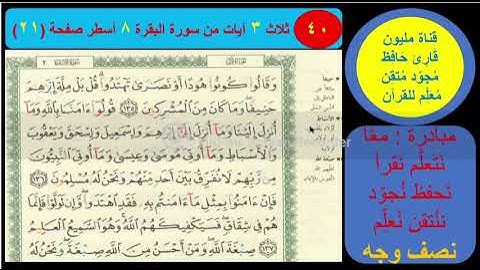 ٤٠
ثلاث ٣ أيات من سورة البقرة ٨ أسطر صفحة (٢١)
قناة مليون
قارئ حَافِظ
مُجوّد مُتقن
مُعلّم للقرآن
مبادرة : معًا
نتعلّم نقرأ
نحفظ نُجوّد
نتقن نُعلّم
نصف وجه
وَقَالُوا۟ كُونُوا۟ هُودًا أَوْ نَصَـٰرَىٰ تَهْتَدُوا۟ ۗ قُلْ بَلْ مِلَّةَ إِبْرَٰهِـۧمَ
حَنِيفًا ۖ وَمَا كَانَ مِنَ ٱلْمُشْرِكِينَ ١٣٥ قُولُوٓا۟ ءَامَنَّا بِٱللَّهِ وَمَآ
أُنزِلَ إِلَيْنَا وَمَآ أُنزِلَ إِلَىٰٓ إِبْرَٰهِـۧمَ وَإِسْمَـٰعِيلَ وَإِسْحَـٰقَ وَيَعْقُوبَ
وَٱلْأَسْبَاطِ وَمَآ أُوتِىَ مُوسَىٰ وَعِيسَىٰ وَمَآ أُوتِىَ ٱلنَّبِيُّونَ
مِن رَّبِّهِمْ لَا نُفَرِّقُ بَيْنَ أَحَدٍ مِّنْهُمْ وَنَحْنُ لَهُۥ مُسْلِمُونَ ١٣٦
فَإِنْ ءَامَنُوا۟ بِمِثْلِ مَآ ءَامَنتُم بِهِۦ فَقَدِ ٱهْتَدَوا۟ ۖ وَّإِن تَوَلَّوْا۟ فَإِنَّمَا
هُمْ فِى شِقَاقٍ ۖ فَسَيَكْفِيكَهُمُ ٱللَّهُ ۚ وَهُوَ ٱلسَّمِيعُ ٱلْعَلِيمُ
١٣٧ صِبْغَةَ ٱللَّهِ ۖ وَمَنْ أَحْسَنُ مِنَ ٱللَّهِ صِبْغَةً ۖ وَنَحْنُ لَهُۥ